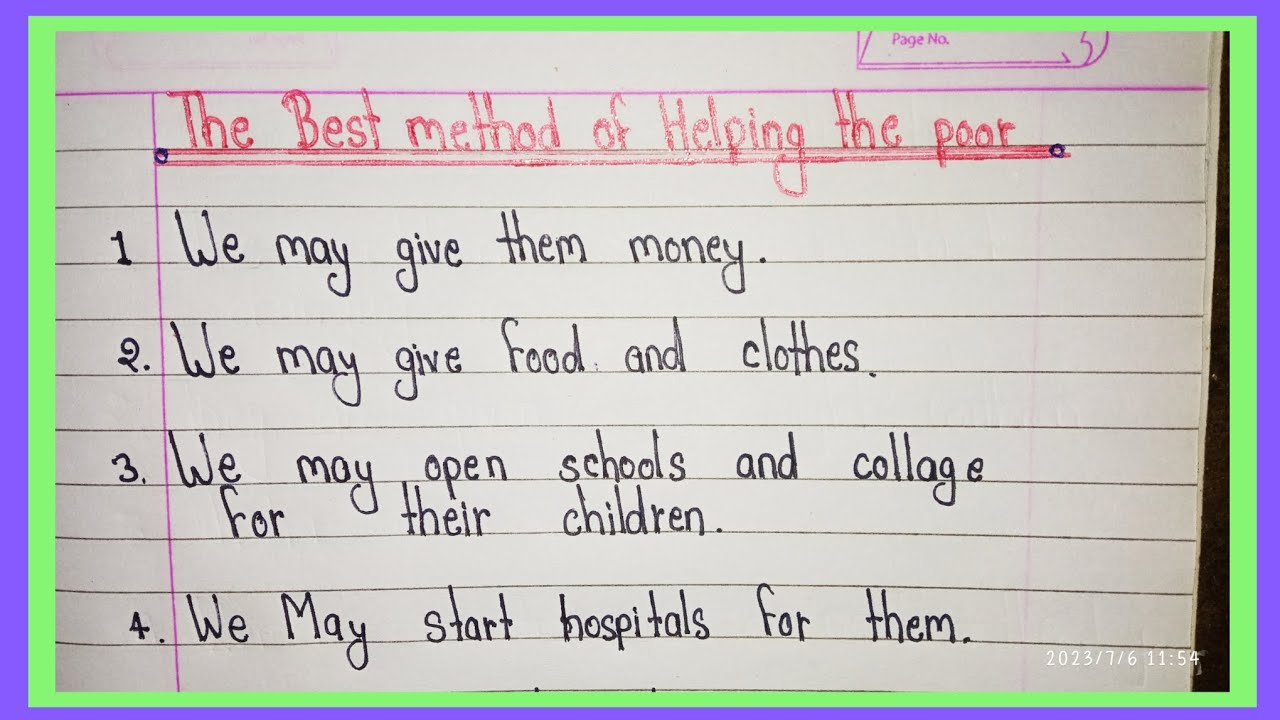 Page No.
The Best method of Helping the poor
1 We may give them money.
2. We may give food and clothes.
3. We may open schools and collage
for their children.
4. We May start hospitals for them.
2023/7/6 11:54